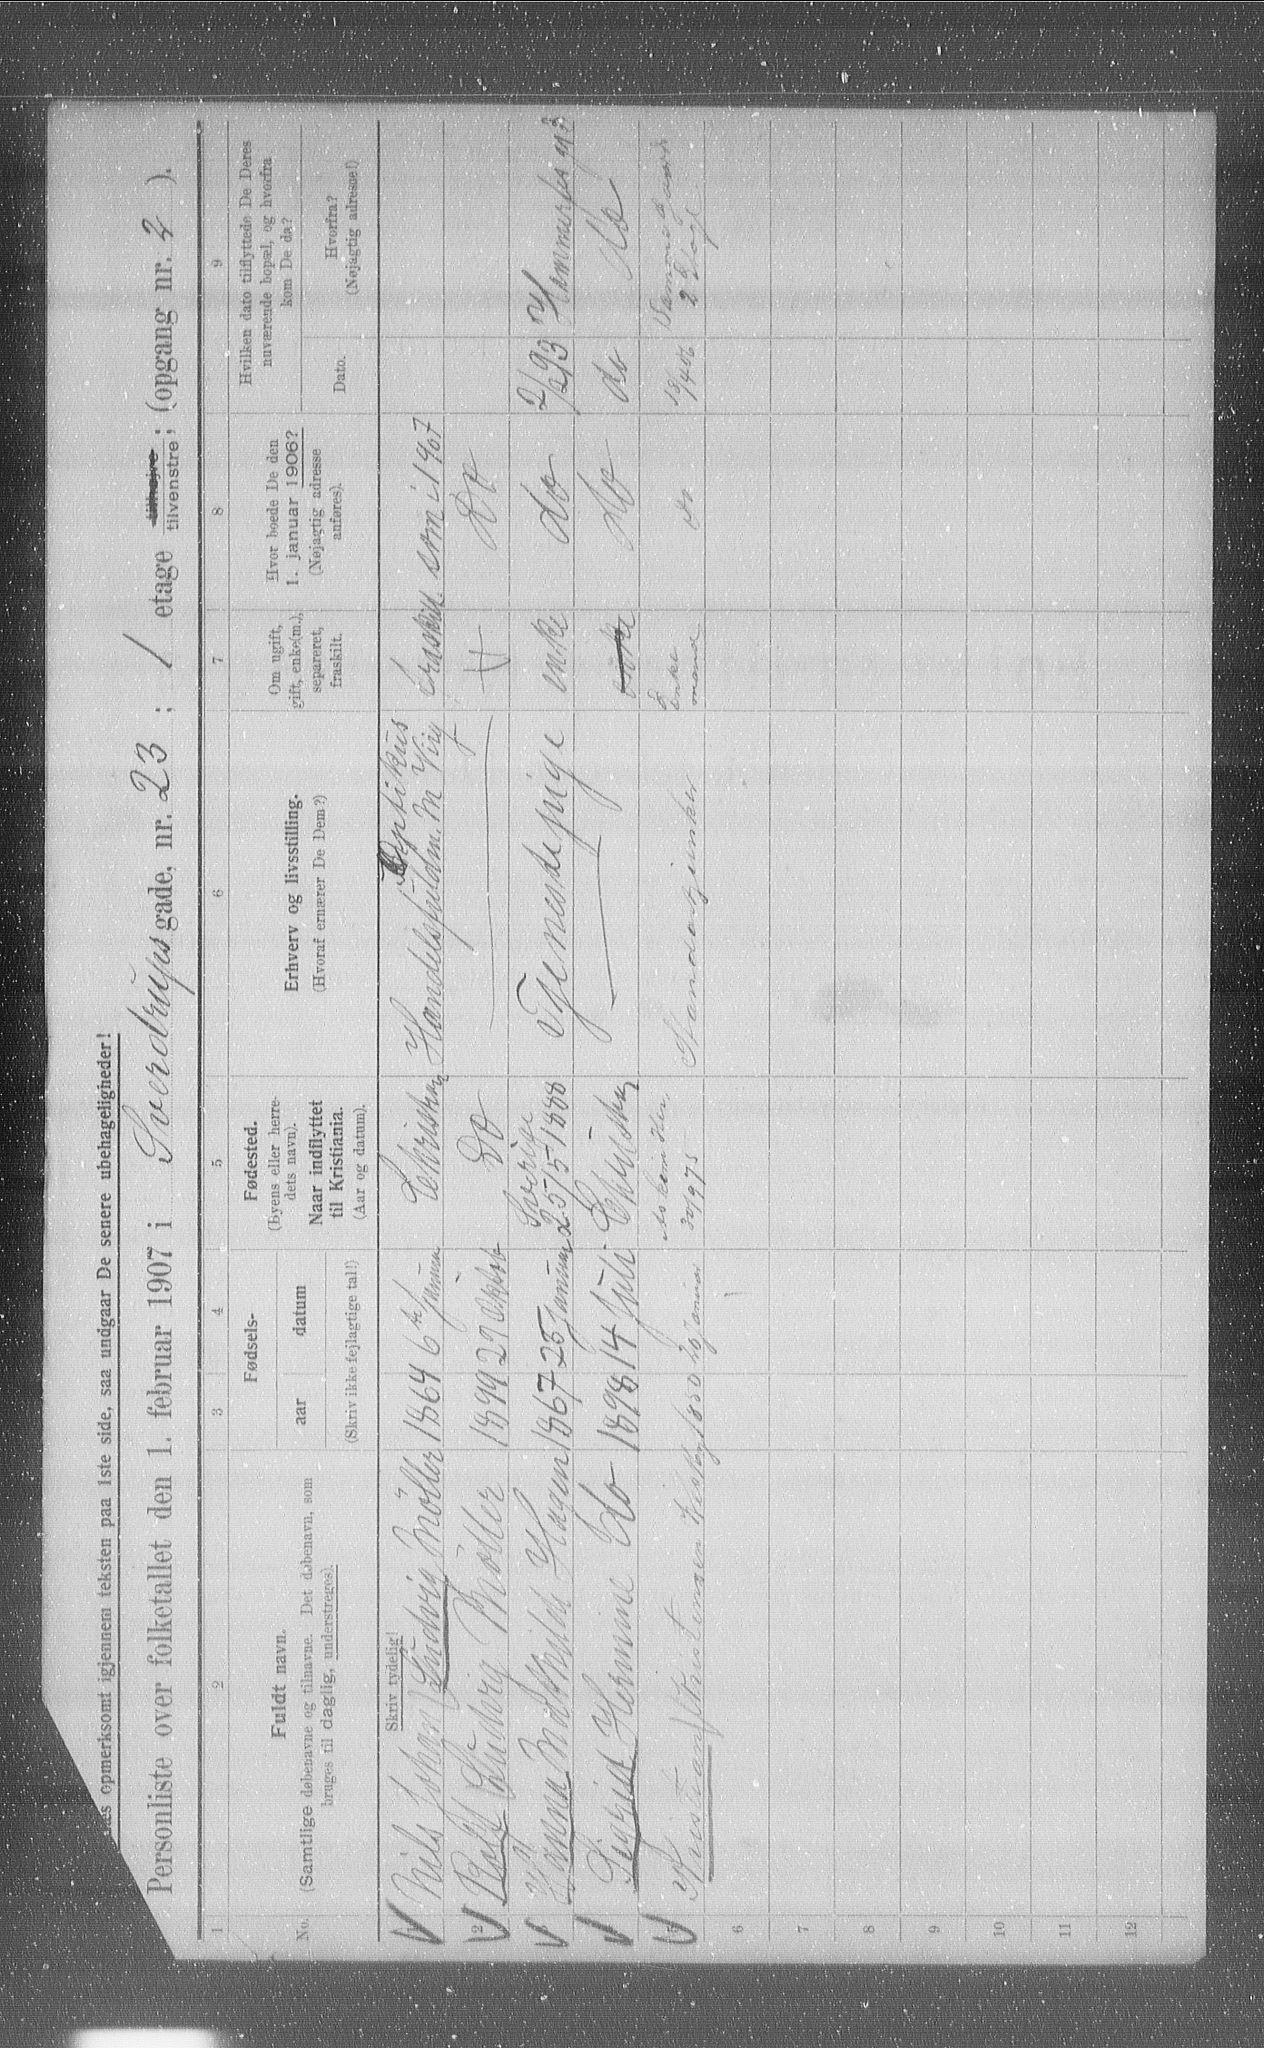 Læs opmerksomt igjennem teksten paa 1ste side, saa undgaar De senere ubehageligheder!
Personliste over folketallet den 1. februar 1907 i Sverdrupsgade, nr. 23; 1 etage tilhøjre tilvenstre; (opgang nr. 2).
1 2 3 4 5 6 7 8 9
No. Fuldt navn. (Samtlige døbenavne og tilnavne. Det døbenavn, som bruges til daglig, understreges).
Fødsels- aar datum (Skriv ikke fejlagtige tal!)
Fødested. (Byens eller herredets navn). Naar indflyttet til Kristiania. (Aar og datum).
Erhverv og livsstilling. (Hvoraf ernærer De Dem?)
Om ugift, gift, enke(m.), separeret, fraskilt.
Hvor boede De den 1. januar 1906? (Nøjagtig adresse anføres).
Hvilken dato tilflyttede De Deres nuværende bopæl, og hvorfra kom De da?
Dato. Hvorfra? (Nøjagtig adresse!)
Skriv tydelig!
1 Nils Johan Ludvig Möller 1864 6te Januar Christiania Optikus Handelsfuldm. fraskilt. som i 1907
2 Rolf Ludvig Möller 1899 29 Oktob Do Do
3 Hanna Mathilde Hagen 1867 25 Januar Sverige 25/5 1888 Tjenestepige enke do 2/2 93
4 Sigrid Hermine Do 1898 14 Juli enke do do do
5 Kristian Kristensen 1850 20 Januar Askim 30/9 75 Enkemand do
6
7
8
9
10
11
12